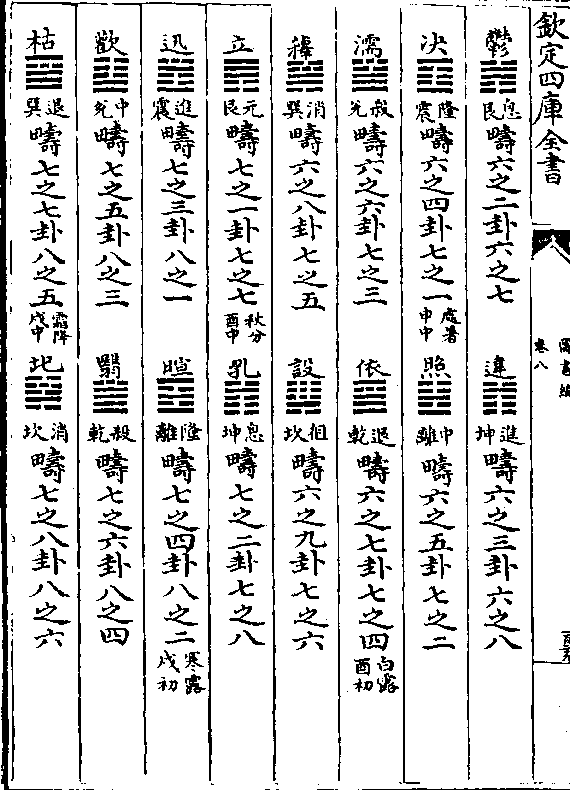 欽定四庫全書 圖書編 卷八
鬱 息艮 疇六之二卦六之七 違 進坤 疇六之三卦六之八
决 隆震 疇六之四卦七之一 處暑申中 照 中離 疇六之五卦七之二
濡 殺兊 疇六之六卦七之三 依 退乾 疇六之七卦七之四 白露酉初
消巽 疇六之八卦七之五 設 徂坎 疇六之九卦七之六
立 元艮 疇七之一卦七之七 秋分酉中 孔 息坤 疇七之二卦七之八
迅 進震 疇七之三卦八之一 暄 隆離 疇七之四卦八之二 寒露戌初
歡 中兊 疇七之五卦八之三 翳 殺乾 疇七之六卦八之四
枯 退巽 疇七之七卦八之五 霜降戌中 圯 消坎 疇七之八卦八之六